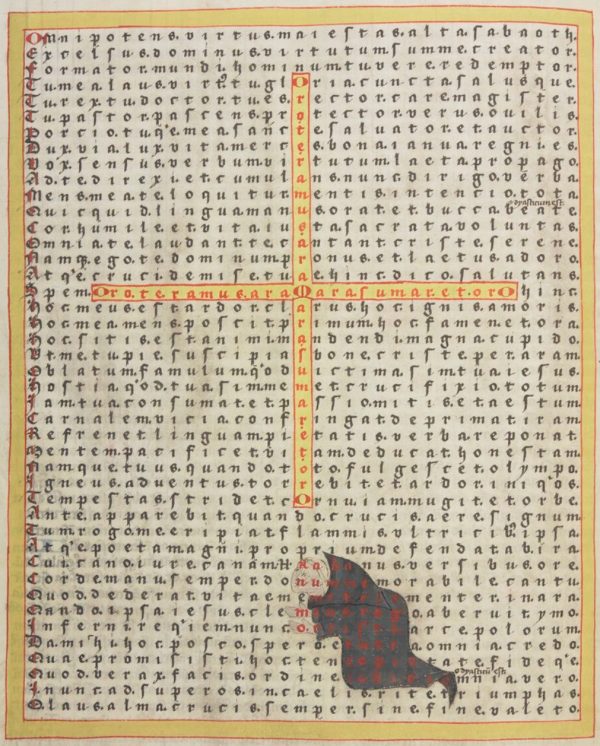 Omnipotens.virtus.maiestas.alta.sabaoth.
Excelsus.dominus.virtutum.summe.creator.
Formator.mundi.hominum.tu.vere.redemptor.
Tu.mea.laus.virt9.tu.gloria.cuncta.salusque.
Tu.rex.tu.doctor.tu.es.rector.care.magister.
Tu.pastor.pascens.protector.verus.ovilis.
Porcio.tu.q'e.mea.sancte.salvator.et.auctor.
Dux.via.lux.vita.merces.bona.ianua.regni.es.
Vox.sensus.verbum.virtutum.laeta.propago.
Ad.te.direxi.et.cumulans.nunc.dirigo.verba.
Mens.mea.te.loquitur.mentis.intencio.tota.
Quicquid.lingua.manus.orat.et.bucca.beate.
Cor.humile.et.vita.iusta.sacrata.voluntas.
Omnia.te.laudant.et.cantant.criste.serene.
Namq'.ego.te.dominum.pronus.et.laetus.adoro.
Atq'e.cruci.demise.tuae.hinc.dico.salutans.
Spem.Oro.te.ramus.ara.ara.sumar.et.orO.hinc.
Hoc.meus.est.ardor.clarus.hoc.ignis.amoris.
Hoc.mea.mens.poscit.primum.hoc.famen.et.ora.
Hoc.sitis.est.animi.mandendi.magna.cupido.
Vt.me.tu.pie.suscipias.bone.criste.per.aram.
Oblatum.famulum.q'od.victima.sim.tua.iesus.
Hostia.q'od.tua.sim.memet.crucifixio.totum.
Iam.tua.consumat.et.passio.mitis.et.aestum.
Carnalem.vicia.confringat.deprimat.iram.
Refrenet.linguam.pietatis.verba.reponat.
Mentem.pacificet.vitam.deducat.honestam.
Namque.tuus.quando.toto.fulgescet.olympo.
Igneus.adventus.torrebit.et.ardor.iniq'os.
Tempestas.stridet.cornu.iam.mugit.et.orbe.
Ante.apparebit.quando.crucis.aere.signum.
Tum.rogo.me.eripiat.flammis.vltricib9.ipsa.
Atq'e.poeta.magni.proprium.defendat.ab.ira.
Cui.cano.iure.canam.Hrabanus.versibus.ore.
Corde.manu.semper.donum.memorabile.cantu.
Quod.dederat.vitae
Infernire.q'iem.nunc arce.polorum.
Da.mihi.hoc.posco.spero omnia.credo.
Quae.promisisti.hoc.ten fide.q'e.
Quod.verax.facis.ordine omnia.vero.
Inunc.ad.superos.in.caelis.rite.triumphas.
O.laus.alma.crucis.semper.sine.fine.valeto.